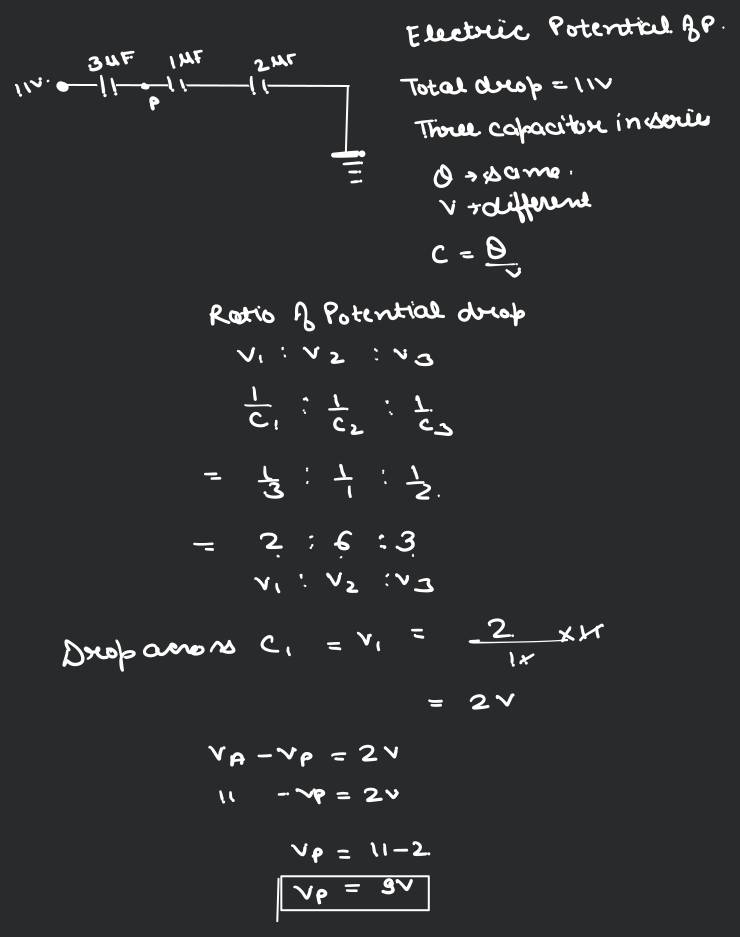 Electric Potential of P.
3μF 1μF 2μF
11V.
P
Total drop = 11V
Three capacitor in serie
Q → same.
V → different
C = Q/V
Ratio of Potential drop
V1 : V2 : V3
1/C1 : 1/C2 : 1/C3
= 1/3 : 1/1 : 1/2.
= 2 : 6 : 3
V1 : V2 : V3
Drop across C1 = V1 = 2/11 × 11
= 2V
VA - VP = 2V
11 - VP = 2V
VP = 11-2
VP = 9V